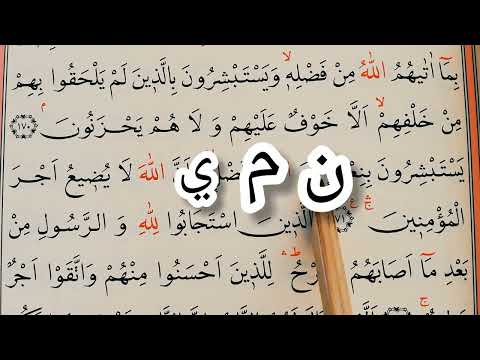 بِمَٓا اٰتٰيهُمُ اللّٰهُ مِنْ فَضْلِه۪ۙ وَيَسْتَبْشِرُونَ بِالَّذ۪ينَ لَمْ يَلْحَقُوا بِهِمْ
مِنْ خَلْفِهِمْۙ اَلَّا خَوْفٌ عَلَيْهِمْ وَلَا هُمْ يَحْزَنُونَۢ ﴿١٧٠﴾
يَسْتَبْشِرُونَ اللّٰهَ لَا يُض۪يعُ اَجْرَ
ن م ي
الْمُؤْمِن۪ينَۚۛ الَّذ۪ينَ اسْتَجَابُوا لِلّٰهِ وَالرَّسُولِ مِنْ
بَعْدِ مَٓا اَصَابَهُمُ لِلَّذ۪ينَ اَحْسَنُوا مِنْهُمْ وَاتَّقَوْا اَجْرٌ